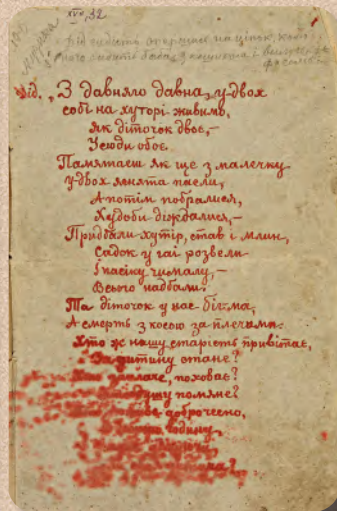 XVII, 32
Від. „З давняго давна, у-двох
собі на хуторі живимо,
Як діточок двоє,–
Усюди обоє.
Памятаєш як ще з малечку
у-двох ягнята пасли,
А потім побралися,
Худоби діждалися,–
Придбали хутір, став і млин,
Садок у гаї розвели
І пасіку чималу,–
Всього надбали.
Та діточок у нас бігма,
А смерть з косою за плечима.
Хто ж нашу старість привітає,
За дитину стане?
заплаче, поховає?
душу помяне?
доброчесно,
годину,